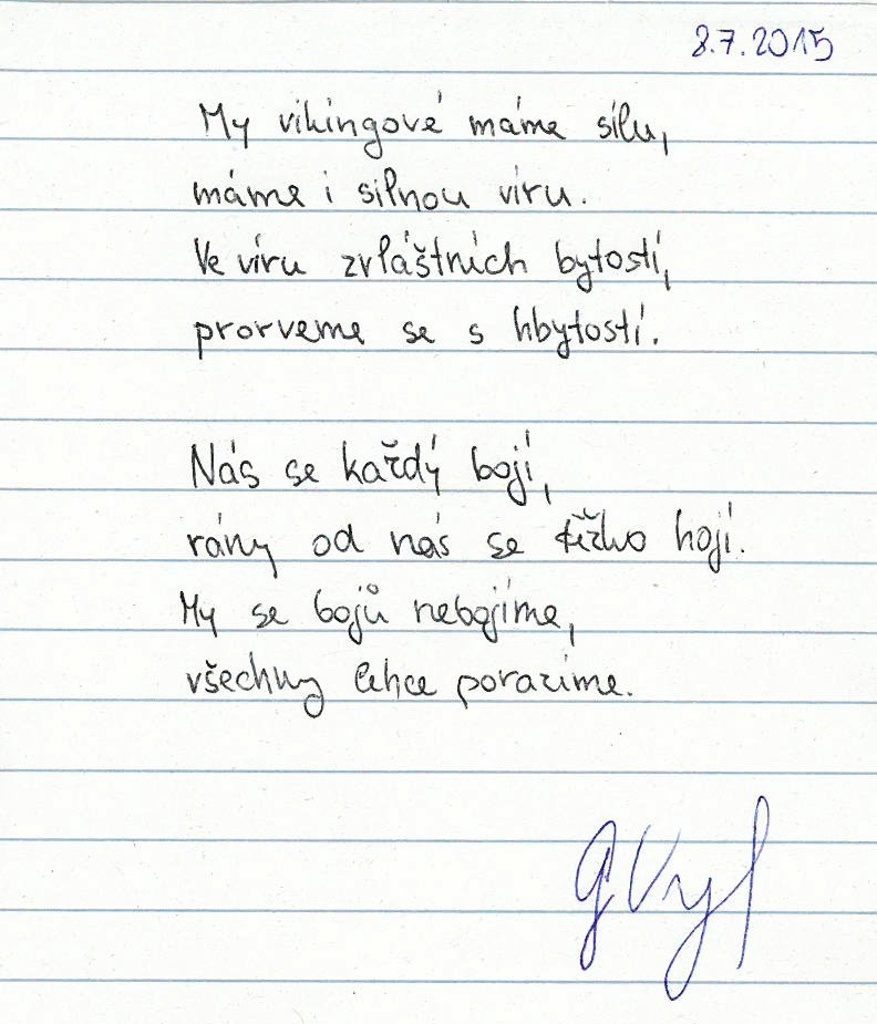 8.7.2015
My vikingové máme sílu,
máme i silnou víru.
Ve víru zvláštních bytostí,
prorveme se s hbytostí.
Nás se každý bojí,
rány od nás se těžko hojí.
My se bojů nebojíme,
všechny lehce porazíme.